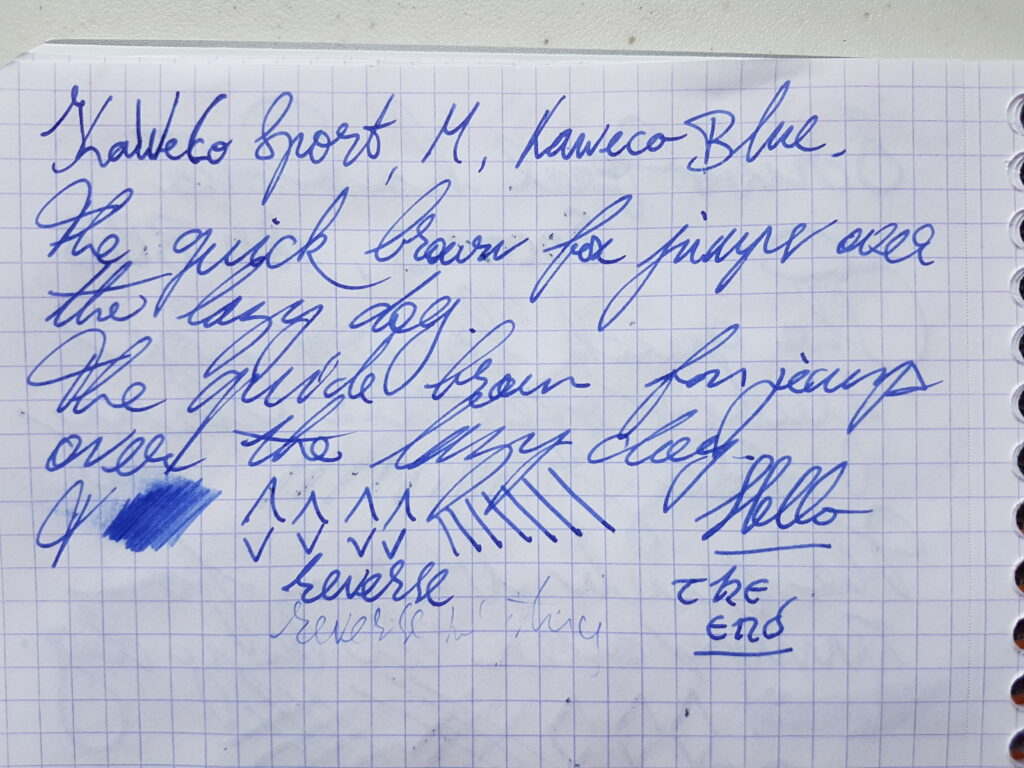 Kaweco Sport, M, Kaweco Blue.
The quick brown fox jumps over
the lazy dog.
The quick brown fox jumps
over the lazy dog.
Hello
reverse
reverse
the
end